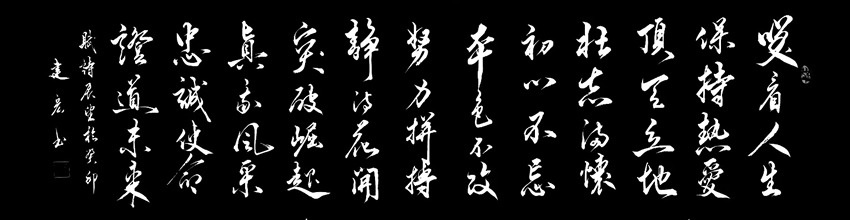 笑看人生
保持熱愛
頂天立地
壯志滿懷
初心不忘
本色不改
努力拼搏
靜待花開
突破崛起
真我風采
忠誠使命
證道未來
賦詩展望於癸卯
建彥书